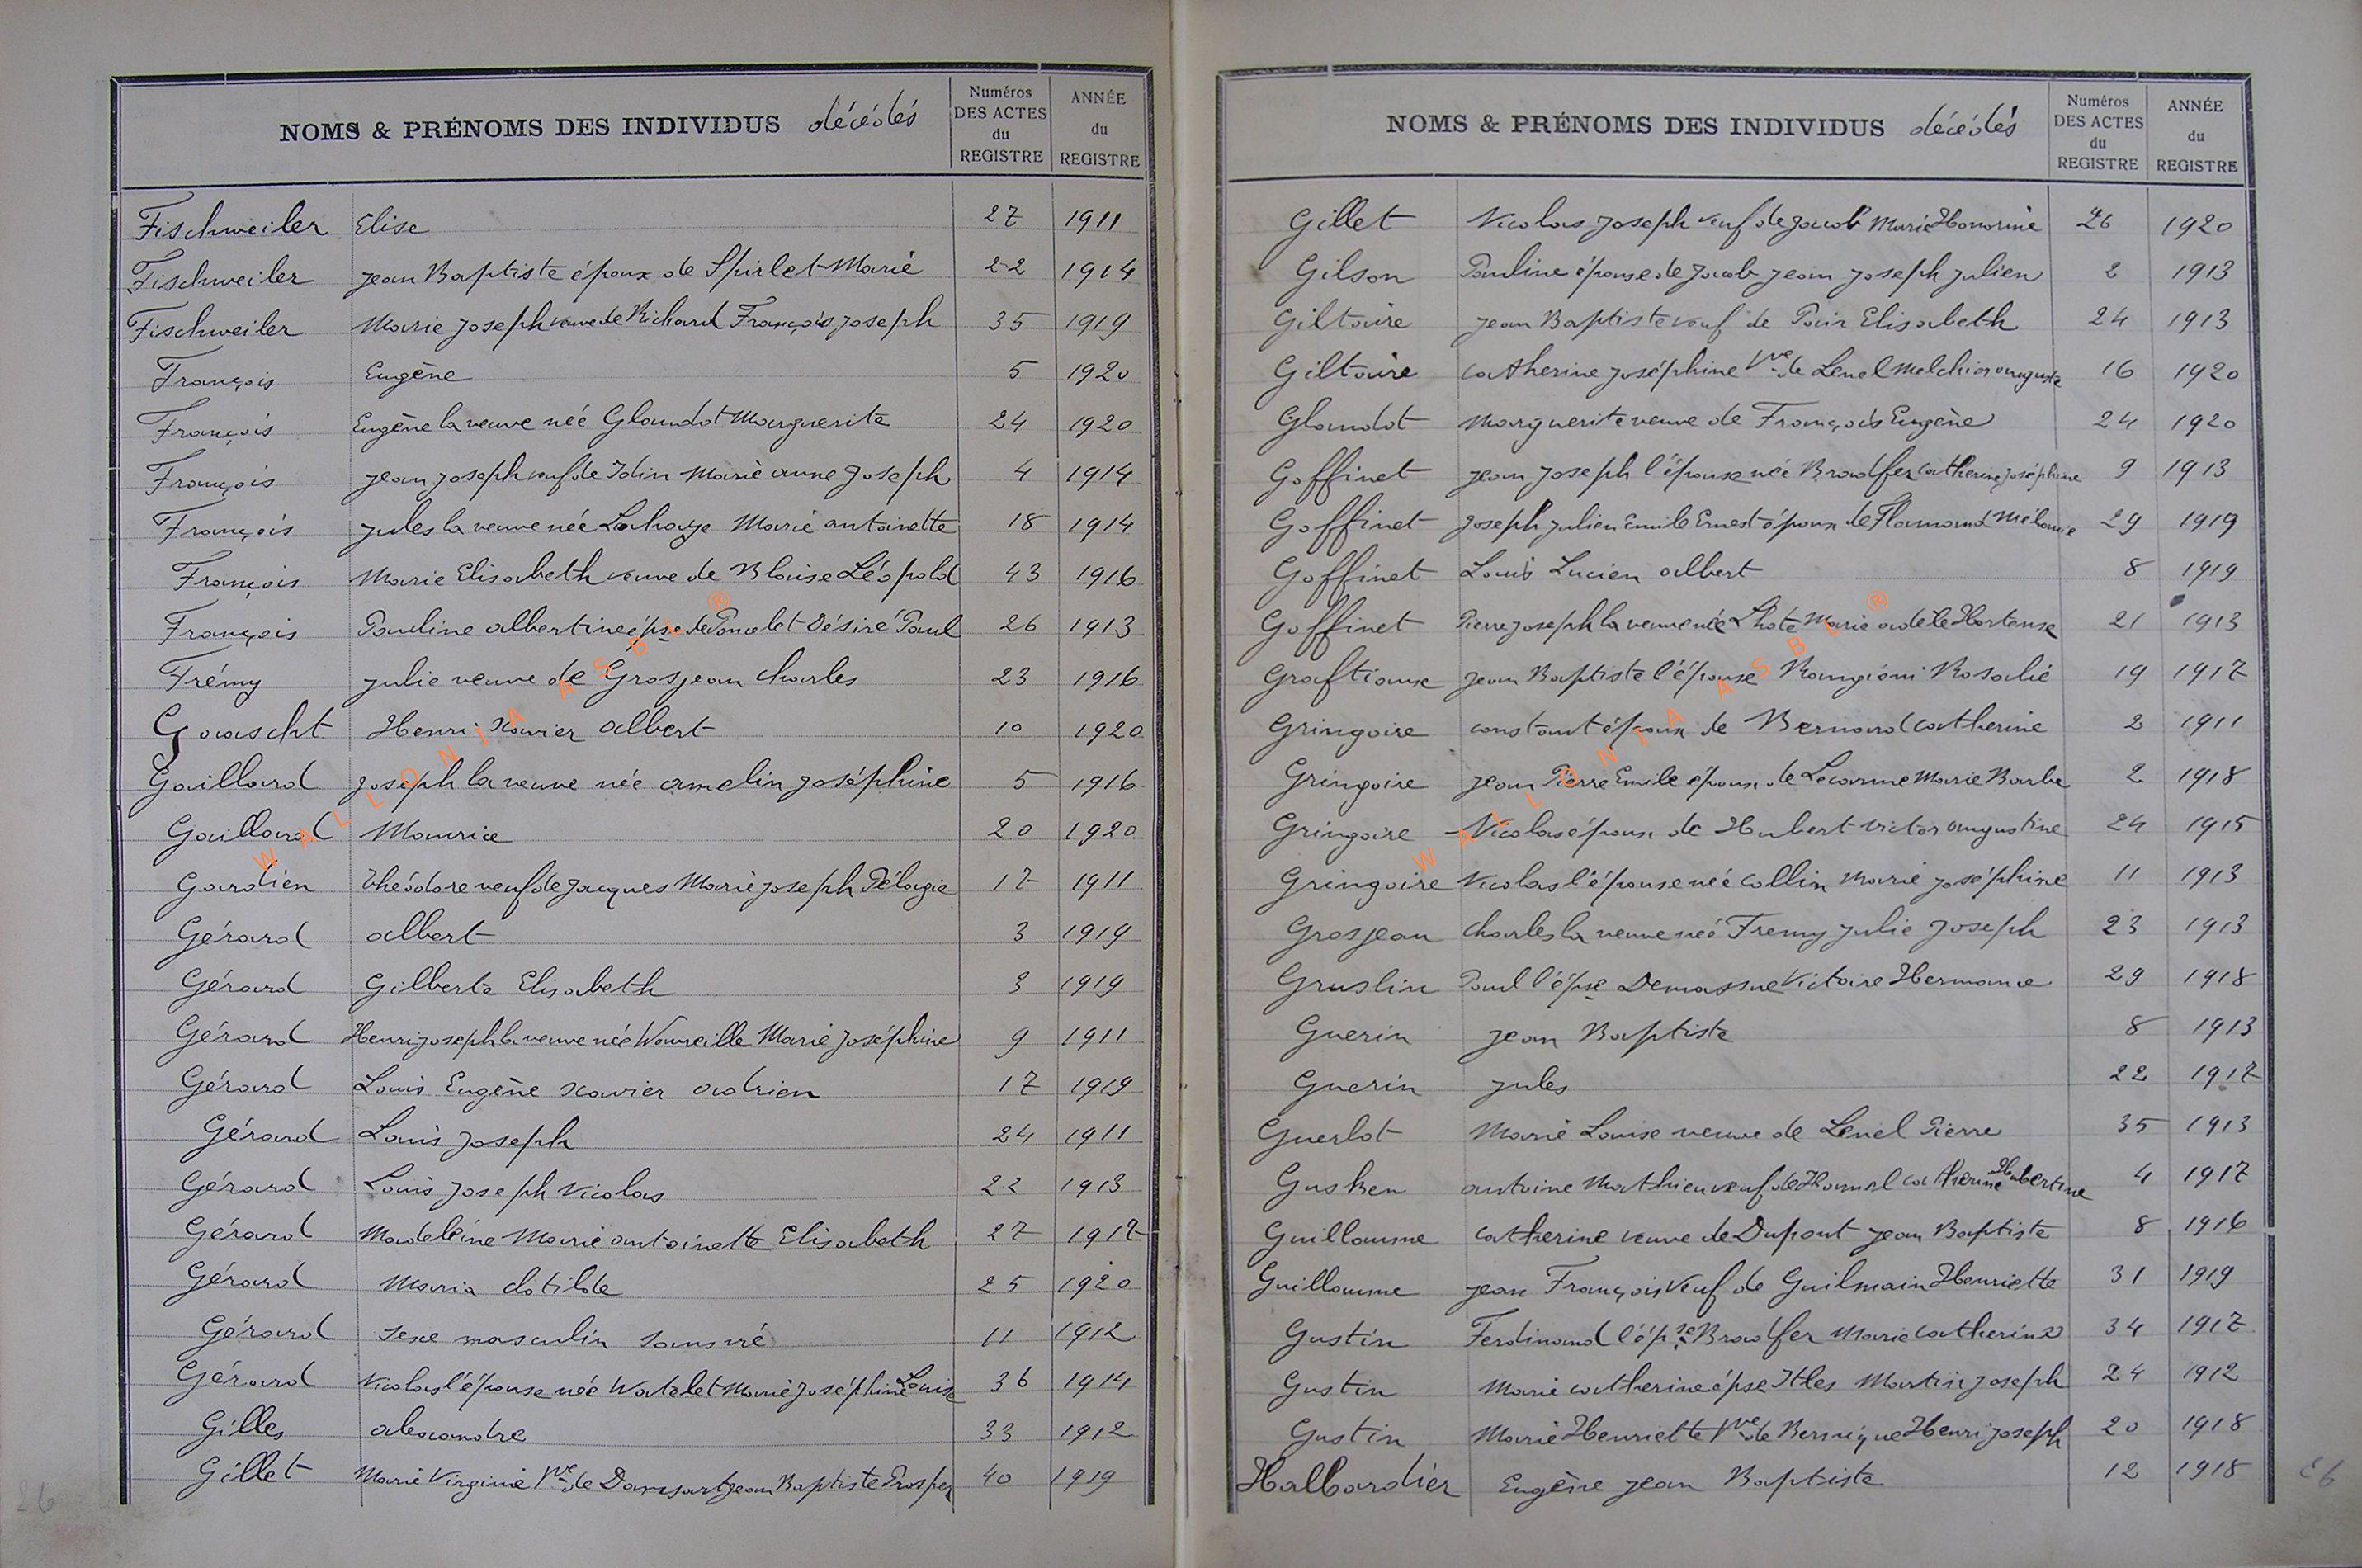 NOMS & PRÉNOMS DES INDIVIDUS décédés
Numéros DES ACTES du REGISTRE
ANNÉE du REGISTRE
Fischweiler Elise 27 1911
Fischweiler Jean Baptiste époux de Spirlet Marie 22 1914
Fischweiler Marie Joseph veuve de Richard François Joseph 35 1919
François Eugène 5 1920
François Eugène la veuve née Glaudot Marguerite 24 1920
François Jean Joseph veuf de Marie anne Joseph 4 1914
François Jules la veuve née Lahaye Marie antoinette 18 1914
François Marie Elisabeth veuve de Blaise Léopold 43 1916
François Pauline albertine épse de Poncelet Désiré Paul 26 1913
Frémy Julie veuve de Grosjean charles 23 1916
Gaascht Henri Xavier albert 10 1920
Gaillard Joseph la veuve née amelin Joséphine 5 1916
Gaillard Maurice 20 1920
Gardien théodore veuf de Jacques Marie Joseph Pélagie 17 1911
Gérard albert 3 1919
Gérard Gilberte Elisabeth 3 1919
Gérard Henri Joseph la veuve née Marie Joséphine 9 1911
Gérard Louis Eugène Xavier adrien 17 1919
Gérard Louis Joseph 24 1911
Gérard Louis Joseph Nicolas 22 1913
Gérard Madeleine Marie antoinette Elisabeth 27 1917
Gérard Maria clotilde 25 1920
Gérard sexe masculin sans vie 11 1912
Gérard Nicolas l'épouse née Watelet Marie Joséphine Louise 36 1914
Gilles alexandre 33 1912
Gillet Marie Virginie Vve de Jean Baptiste Prosper 40 1919
26
NOMS & PRÉNOMS DES INDIVIDUS décédés
Numéros DES ACTES du REGISTRE
ANNÉE du REGISTRE
Gillet Nicolas Joseph veuf de Jacob Marie Honorine 26 1920
Gilson Pauline épouse de Jacob Jean Joseph Julien 2 1913
Giltaire Jean Baptiste veuf de Elisabeth 24 1913
Giltaire catherine Joséphine Vve de Lenel Melchior auguste 16 1920
Glaudot Marguerite veuve de François Eugène 24 1920
Goffinet Jean Joseph l'épouse née Bradfer catherine Joséphine 9 1913
Goffinet Joseph Julien Emile Ernest époux de Flamand Mélanie 29 1919
Goffinet Louis Lucien albert 8 1919
Goffinet Pierre Joseph la veuve née Lhote Marie adèle Hortense 21 1913
Graftiaux Jean Baptiste l'épouse Rosalie 19 1917
Gringoire constant époux de Bernard catherine 2 1911
Gringoire Jean Pierre Emile époux de Marie Barbe 2 1918
Gringoire Nicolas époux de Hubert victor augustine 24 1915
Gringoire Nicolas l'épouse née Collin Marie Joséphine 11 1913
Grosjean charles la veuve née Fremy Julie Joseph 23 1913
Gruslin Paul l'épse Victoire Hermance 29 1918
Guerin Jean Baptiste 8 1913
Guerin Jules 22 1917
Guerlot Marie Louise veuve de Lenel Pierre 35 1913
Gusken antoine Mathieu veuf de catherine Hubertine 4 1917
Guillaume catherine veuve de Dupont Jean Baptiste 8 1916
Guillaume Jean François veuf de Guilmain Henriette 31 1919
Gustin Ferdinand l'épse Bradfer Marie catherine 34 1917
Gustin Marie catherine épse Martin Joseph 24 1912
Gustin Marie Henriette Vve de Henri Joseph 20 1918
Halbardier Eugène Jean Baptiste 12 1918
26
WALLONIA ASBL ®
WALLONIA ASBL ®